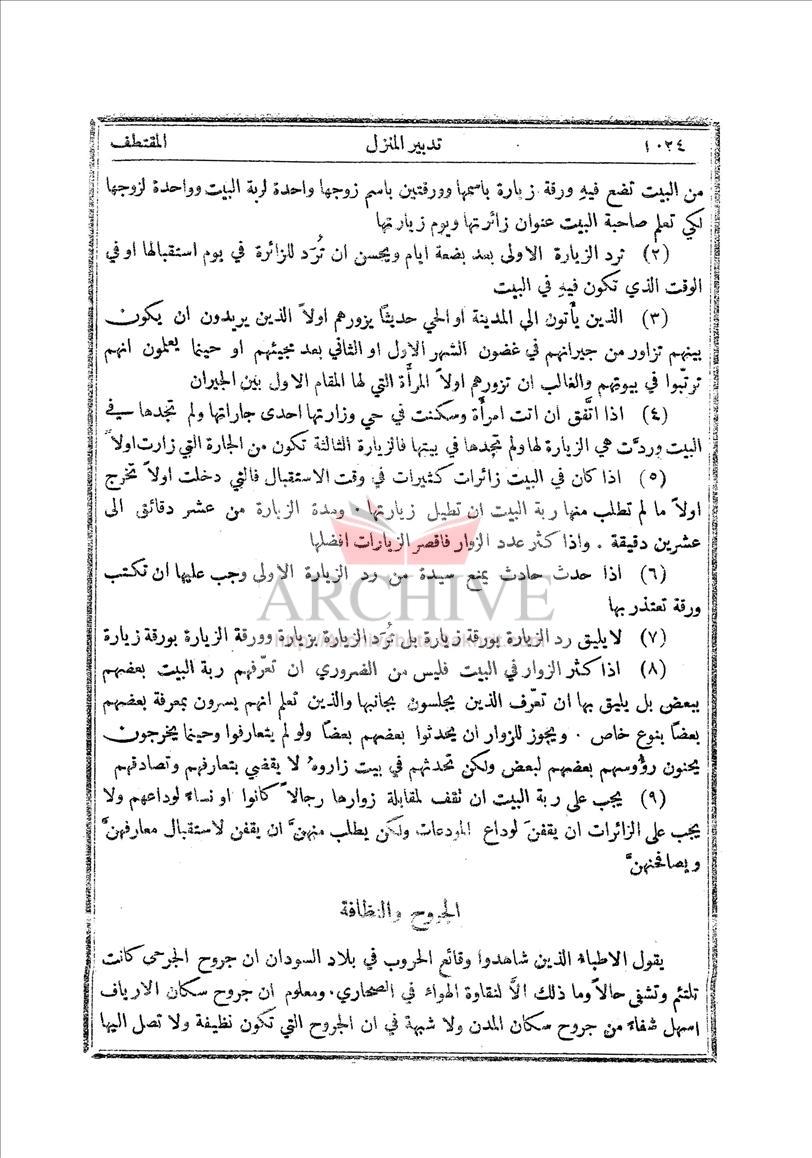 ١٠٢٤ تدبير المنزل المقتطف
من البيت تضع فيهِ ورقة زيارة باسمها وورقتين باسم زوجها واحدة لربة البيت وواحدة لزوجها
لكي تعلم صاحبة البيت عنوان زائرتها ويوم زيارتها
(٢) ترد الزيارة الاولى بعد بضعة ايام ويحسن ان تُرَد للزائرة في يوم استقبالها او في
الوقت الذي تكون فيهِ في البيت
(٣) الذين يأتون الى المدينة او الحي حديثًا يزورهم اولاً الذين يريدون ان يكون
بينهم تزاور من جيرانهم في غضون الشهر الاول او الثاني بعد مجيئهم او حينما يعلمون انهم
ترتّبوا في بيوتهم والغالب ان تزورهم اولاً المرأَة التي لها المقام الاول بين الجيران
(٤) اذا اتَّفق ان اتت امرأَة وسكنت في حي وزارتها احدى جاراتها ولم تجدها في
البيت وردَّت هي الزيارة لها ولم تجدها في بيتها فالزيارة الثالثة تكون من الجارة التي زارت اولاً
(٥) اذا كان في البيت زائرات كثيرات في وقت الاستقبال فالتي دخلت اولاً تخرج
اولاً ما لم تطلب منها ربة البيت ان تطيل زيارتها . ومدة الزيارة من عشر دقائق الى
عشرين دقيقة . واذا كثر عدد الزوار فاقصر الزيارات افضلها
(٦) اذا حدث حادث يمنع سيدة من رد الزيارة الاولى وجب عليها ان تكتب
ورقة تعتذر بها
ARCHIVE
(٧) لا يليق رد الزيارة بورقة زيارة بل تُرَد الزيارة بزيارة وورقة الزيارة بورقة زيارة
(٨) اذا كثر الزوار في البيت فليس من الضروري ان تعرّفهم ربة البيت بعضهم
ببعض بل يليق بها ان تعرّف الذين يجلسون بجانبها والذين تعلم انهم يسرون بمعرفة بعضهم
بعضًا بنوع خاص . ويجوز للزوار ان يحدثوا بعضهم بعضًا ولو لم يتعارفوا وحينما يخرجون
يحنون رؤُوسهم بعضهم لبعض ولكن تحدثهم في بيت زاروهُ لا يقضي بتعارفهم وتصادقهم
(٩) يجب على ربة البيت ان تقف لمقابلة زوارها رجالاً كانوا او نساءً لوداعهم ولا
يجب على الزائرات ان يقفنَ لوداع المودعات ولكن يطلب منهنَّ ان يقفن لاستقبال معارفهنَّ
ويصافحنهنَّ
الجروح والنظافة
يقول الاطباء الذين شاهدوا وقائع الحروب في بلاد السودان ان جروح الجرحى كانت
تلتئم وتشفى حالاً وما ذلك الاَّ لنقاوة الهواء في الصحاري. ومعلوم ان جروح سكان الارياف
اسهل شفاءً من جروح سكان المدن ولا شبهة في ان الجروح التي تكون نظيفة ولا تصل اليها